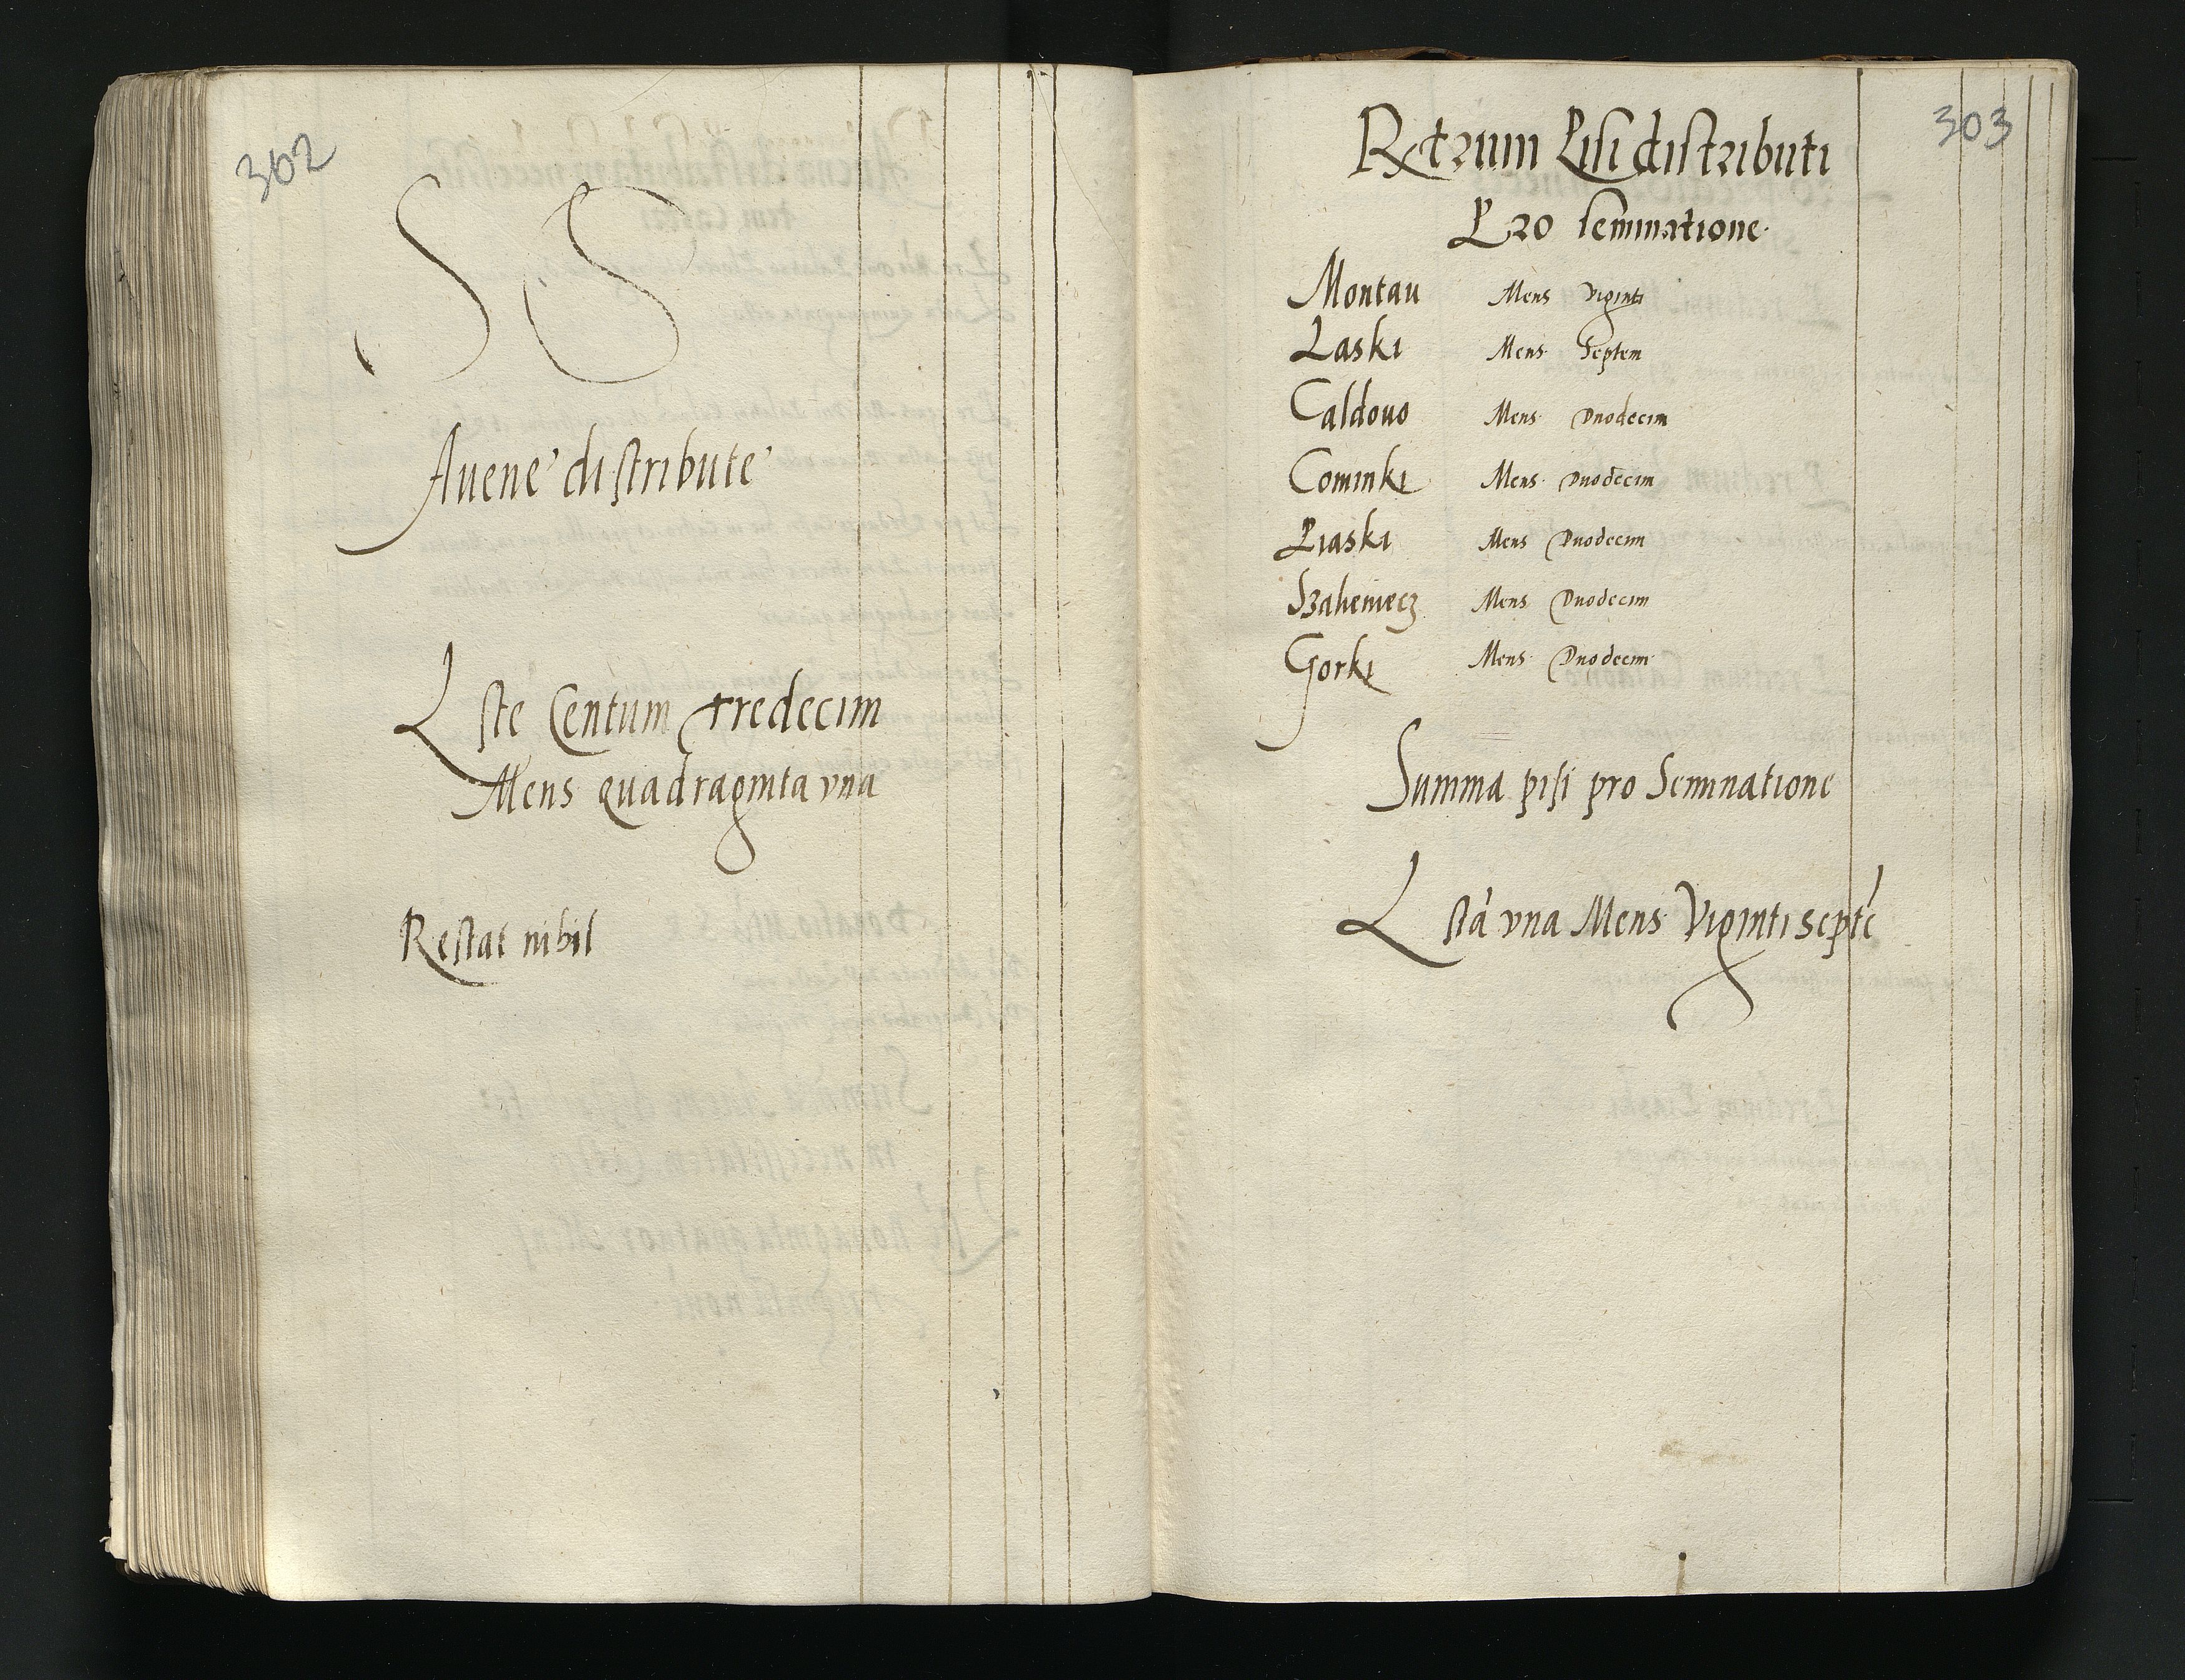 302
SS
Auene distribute
Lste Centum tredecim
Mens quadraginta vna
Restat nihil
303
Rxtrum Pisi distributi
Pro seminatione
Montau Mens Viginti
Laski Mens Septem
Caldouo Mens Duodecim
Cominki Mens Duodecim
Piaski Mens Duodecim
Szaheniecz Mens Duodecim
Gorki Mens Duodecim
Summa pisi pro Seminatione
Lsta vna Mens Viginti septe